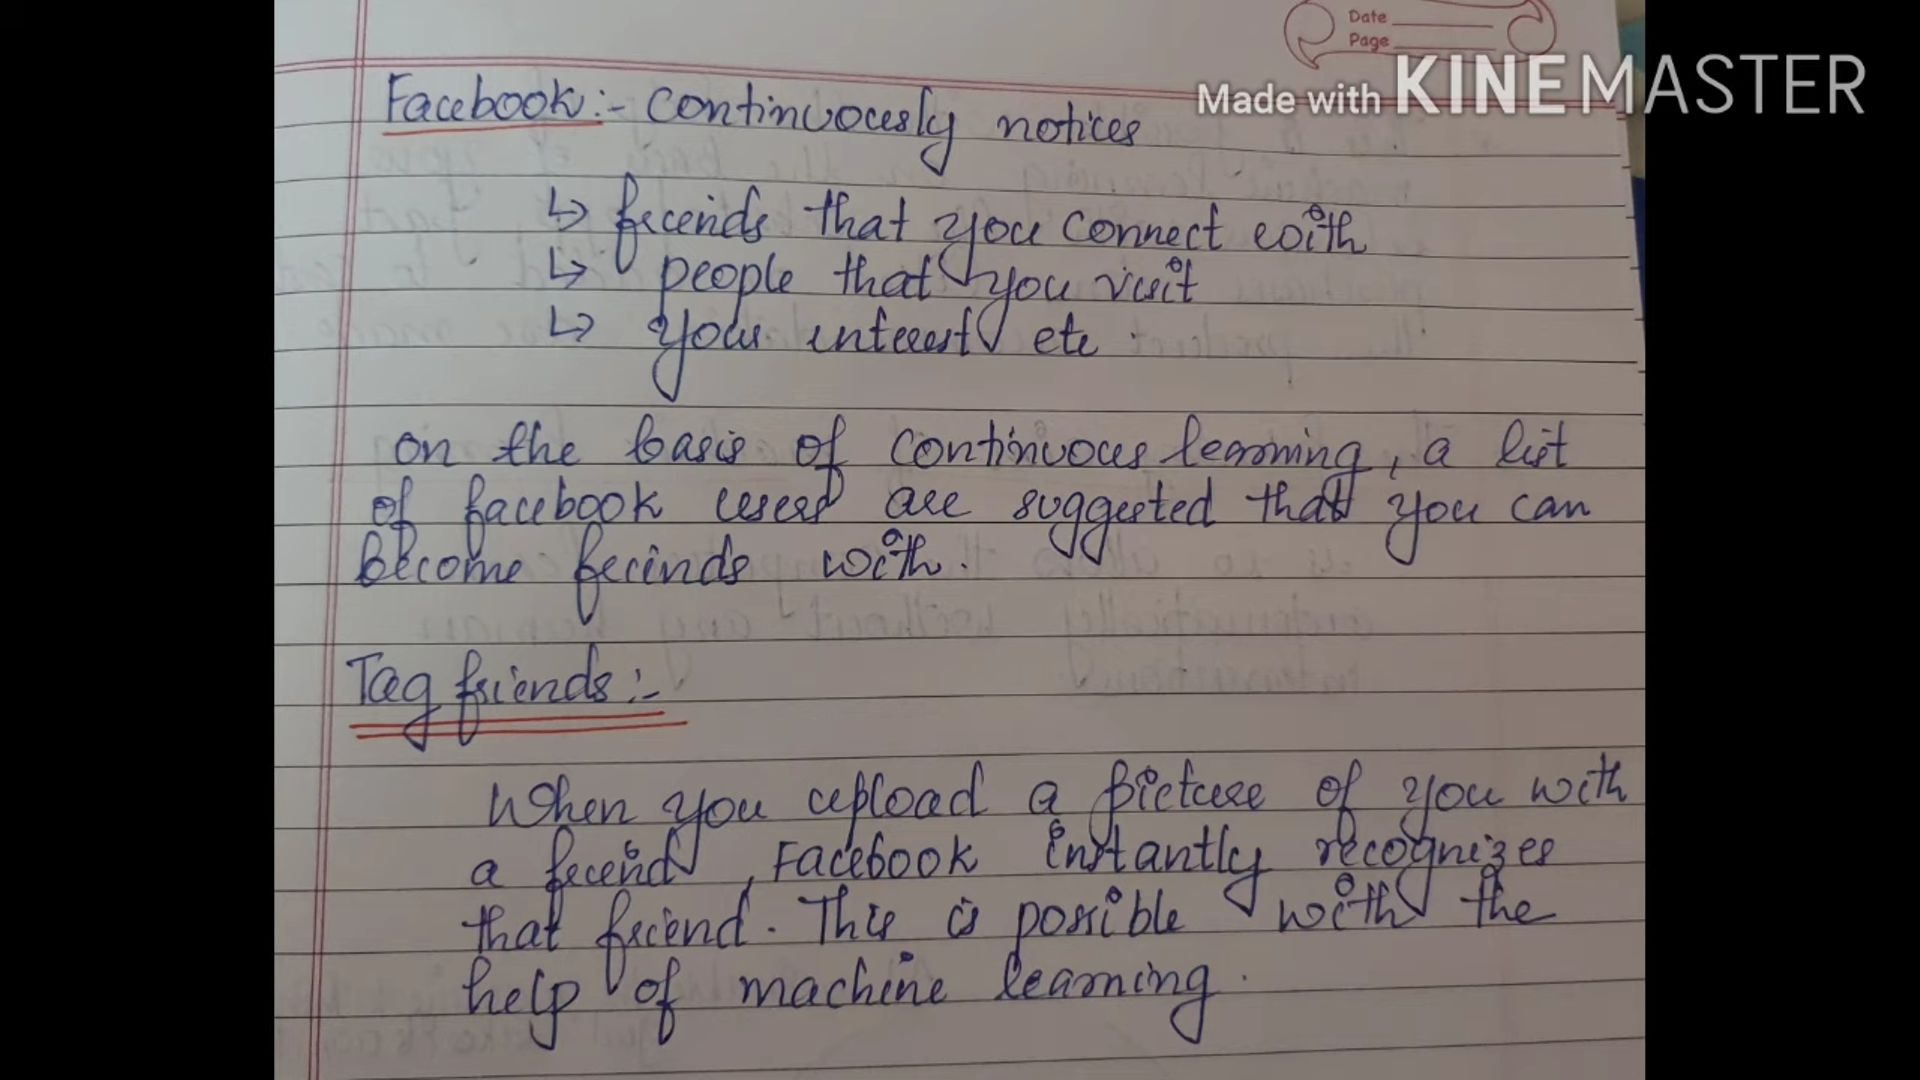 Date
Page
Made with KINEMASTER
Facebook:- Continuously notices
↳ friends that you connect with
↳ people that you visit
↳ your interest etc.
on the basis of continuous learning, a list
of facebook users are suggested that you can
become friends with.
Tag friends:-
When you upload a picture of you with
a friend, Facebook instantly recognizes
that friend. This is possible with the
help of machine learning.